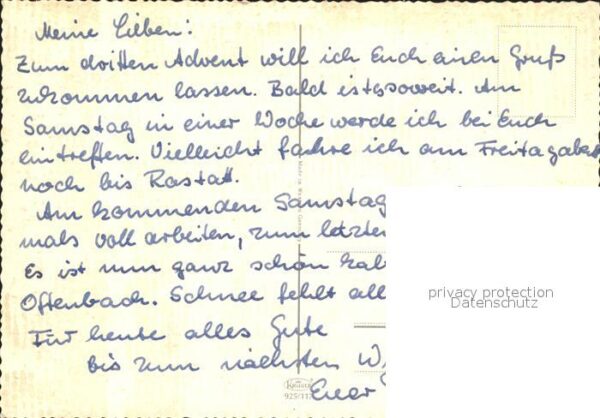 Meine Lieben!
Zum dritten Advent will ich Euch einen Gruß
zukommen lassen. Bald ist's soweit. Am
Samstag in einer Woche werde ich bei Euch
eintreffen. Vielleicht fahre ich am Freitagabend
noch bis Rastatt.
Am kommenden Samstag
mals voll arbeiten, zum letzten
Es ist nun ganz schön kalt
Offenbach. Schnee fehlt
Für heute alles Gute
bis zum nächsten
Euer
privacy protection
Datenschutz
Krüger